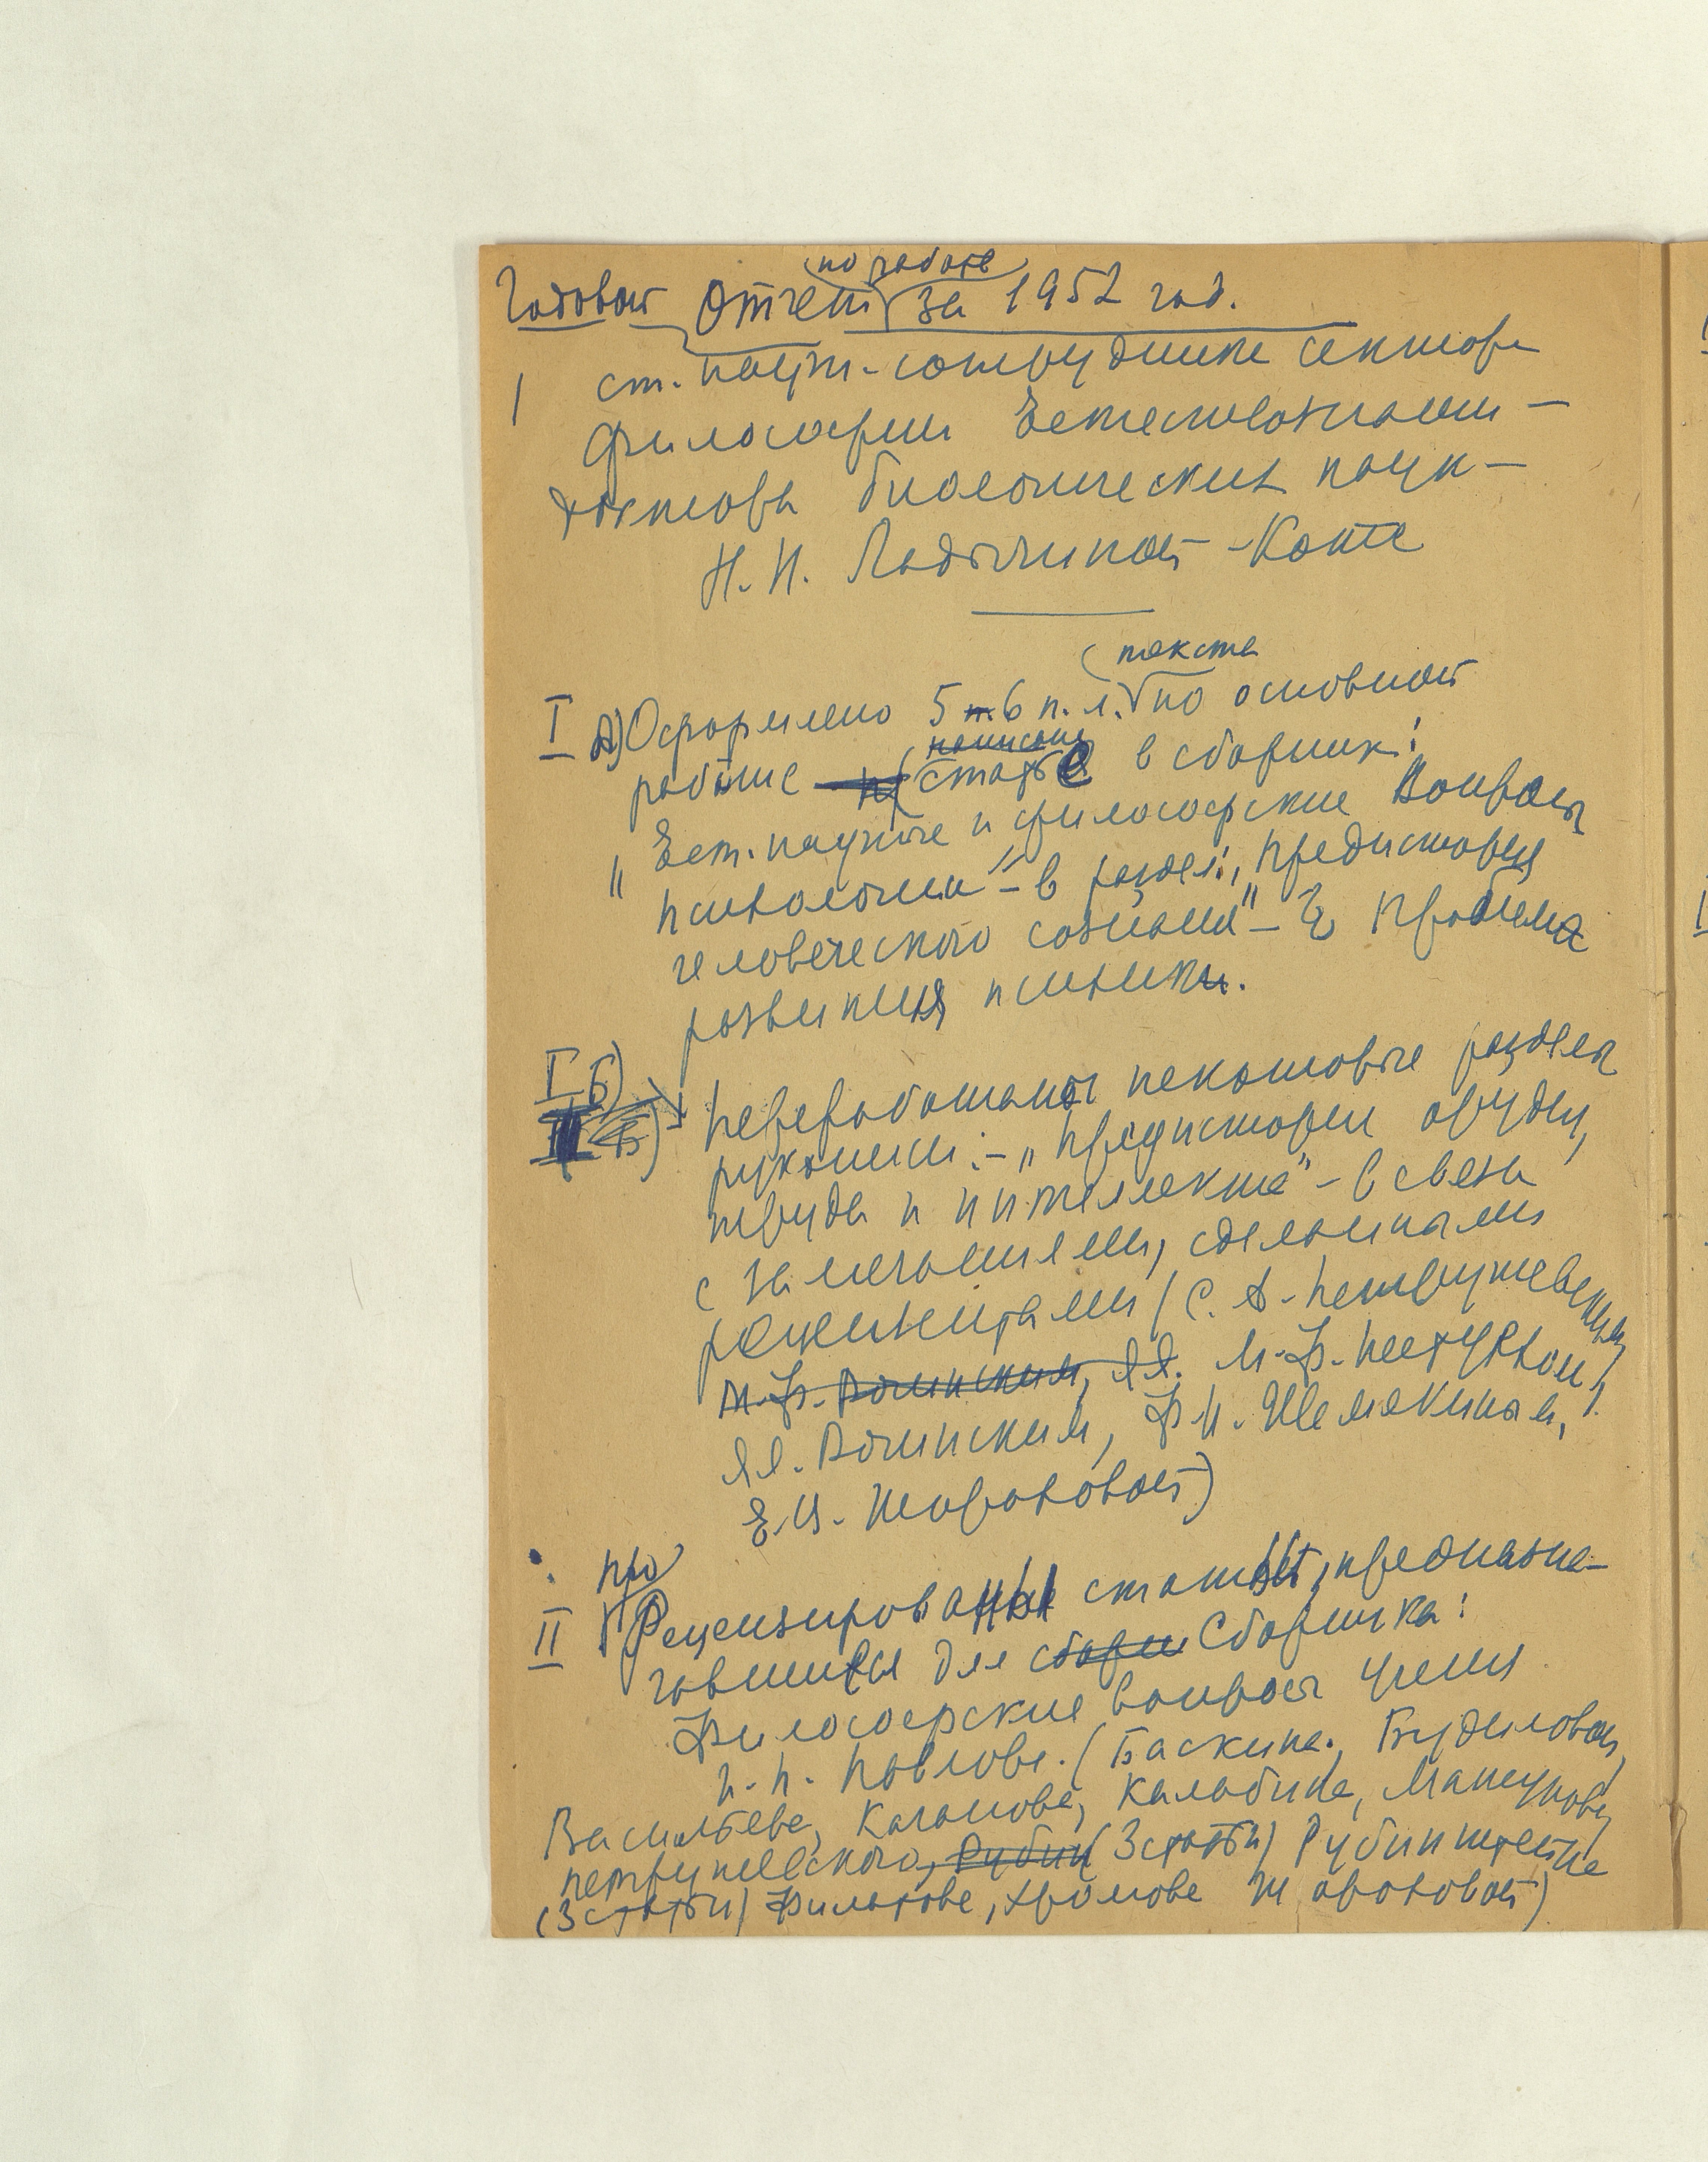 по работе
Годовой Отчет за 1952 год.
ст. научн. сотрудника сектора
философии Естествознания —
доктора биологических наук —
Н. Н. Ладыгиной-Котс
текста
I А) Оформлено 5 6 п. л. по основной
написана
работе статье в сборник:
„Ест. научные и философские Вопросы
психологии" – в раздел: „Предистория
человеческого сознания" – Проблема
развития психики.
I Б) Переработаны некоторые разделы
рукописи: – „Предистории орудий,
труда и интеллекта" – в связи
с замечаниями, сделанными
рецензентами (С. А. Петрушевским,
М. Ф. Нестурхом,
Я. Я. Рогинским, Ф. Н. Шемякиным,
Е. В. Шороховой)
про
II Рецензированы статьи, предназна-
чавшиеся для сборн Сборника:
Философские вопросы учения
И. П. Павлова. (Баскина, Будиловой,
Васильева, Каганова, Калабина,
Петрушевского, Рубин (3 статьи) Рубинштейна
(3 статьи) Филатова, Хромова Шороховой)